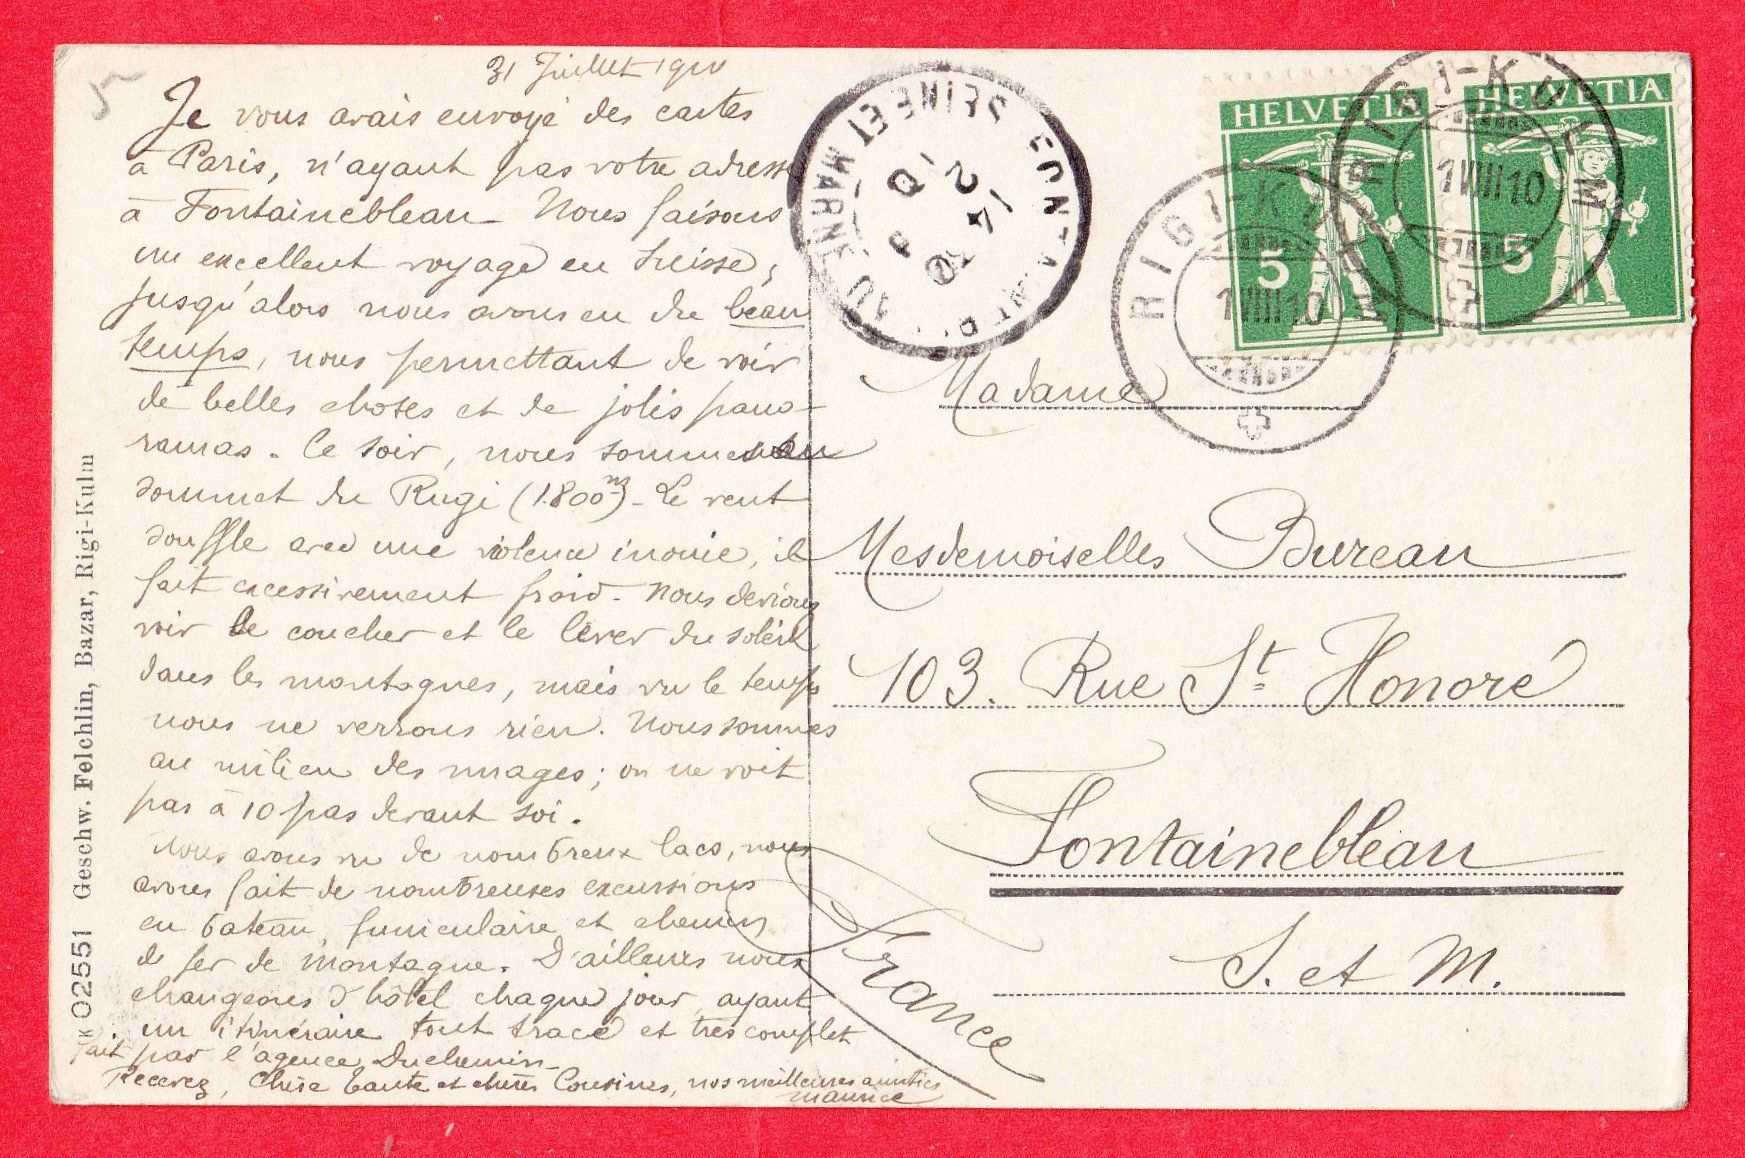 5
31 Juillet 1910
Je vous avais envoyé des cartes
à Paris, n'ayant pas votre adresse
à Fontainebleau - Nous faisons
un excellent voyage en Suisse,
jusqu'alors nous avons eu du beau
temps, nous permettant de voir
de belles choses et de jolis pano-
ramas. Ce soir, nous sommes au
sommet du Rugi (1.800m) - Le vent
souffle avec une violence inouie, il
fait excessivement froid. Nous devions
voir le coucher et le lever du soleil
dans les montagnes, mais vu le temps
nous ne verrons rien. Nous sommes
au milieu des nuages; on ne voit
pas à 10 pas devant soi.
Nous avons vu de nombreux lacs, nous
avons fait de nombreuses excursions
en bateau, funiculaire et chemins
de fer de montagne. D'ailleurs nous
changeons d'hôtel chaque jour, ayant
un itinéraire tout tracé et très complet
fait par l'agence Duchemin -
Recevez, chère tante et chères Cousines, nos meilleures amitiés
Maurice
K 02551 Geschw. Felchlin, Bazar, Rigi-Kulm
FONTAINEBLEAU
SEINE ET MARNE
14
2
8
10
HELVETIA
5
HELVETIA
5
RIGI-KULM
1 VIII 10
RIGI-KULM
1 VIII 10
Madame
Mesdemoiselles Bureau
103. Rue St Honoré
Fontainebleau
S. et M.
France